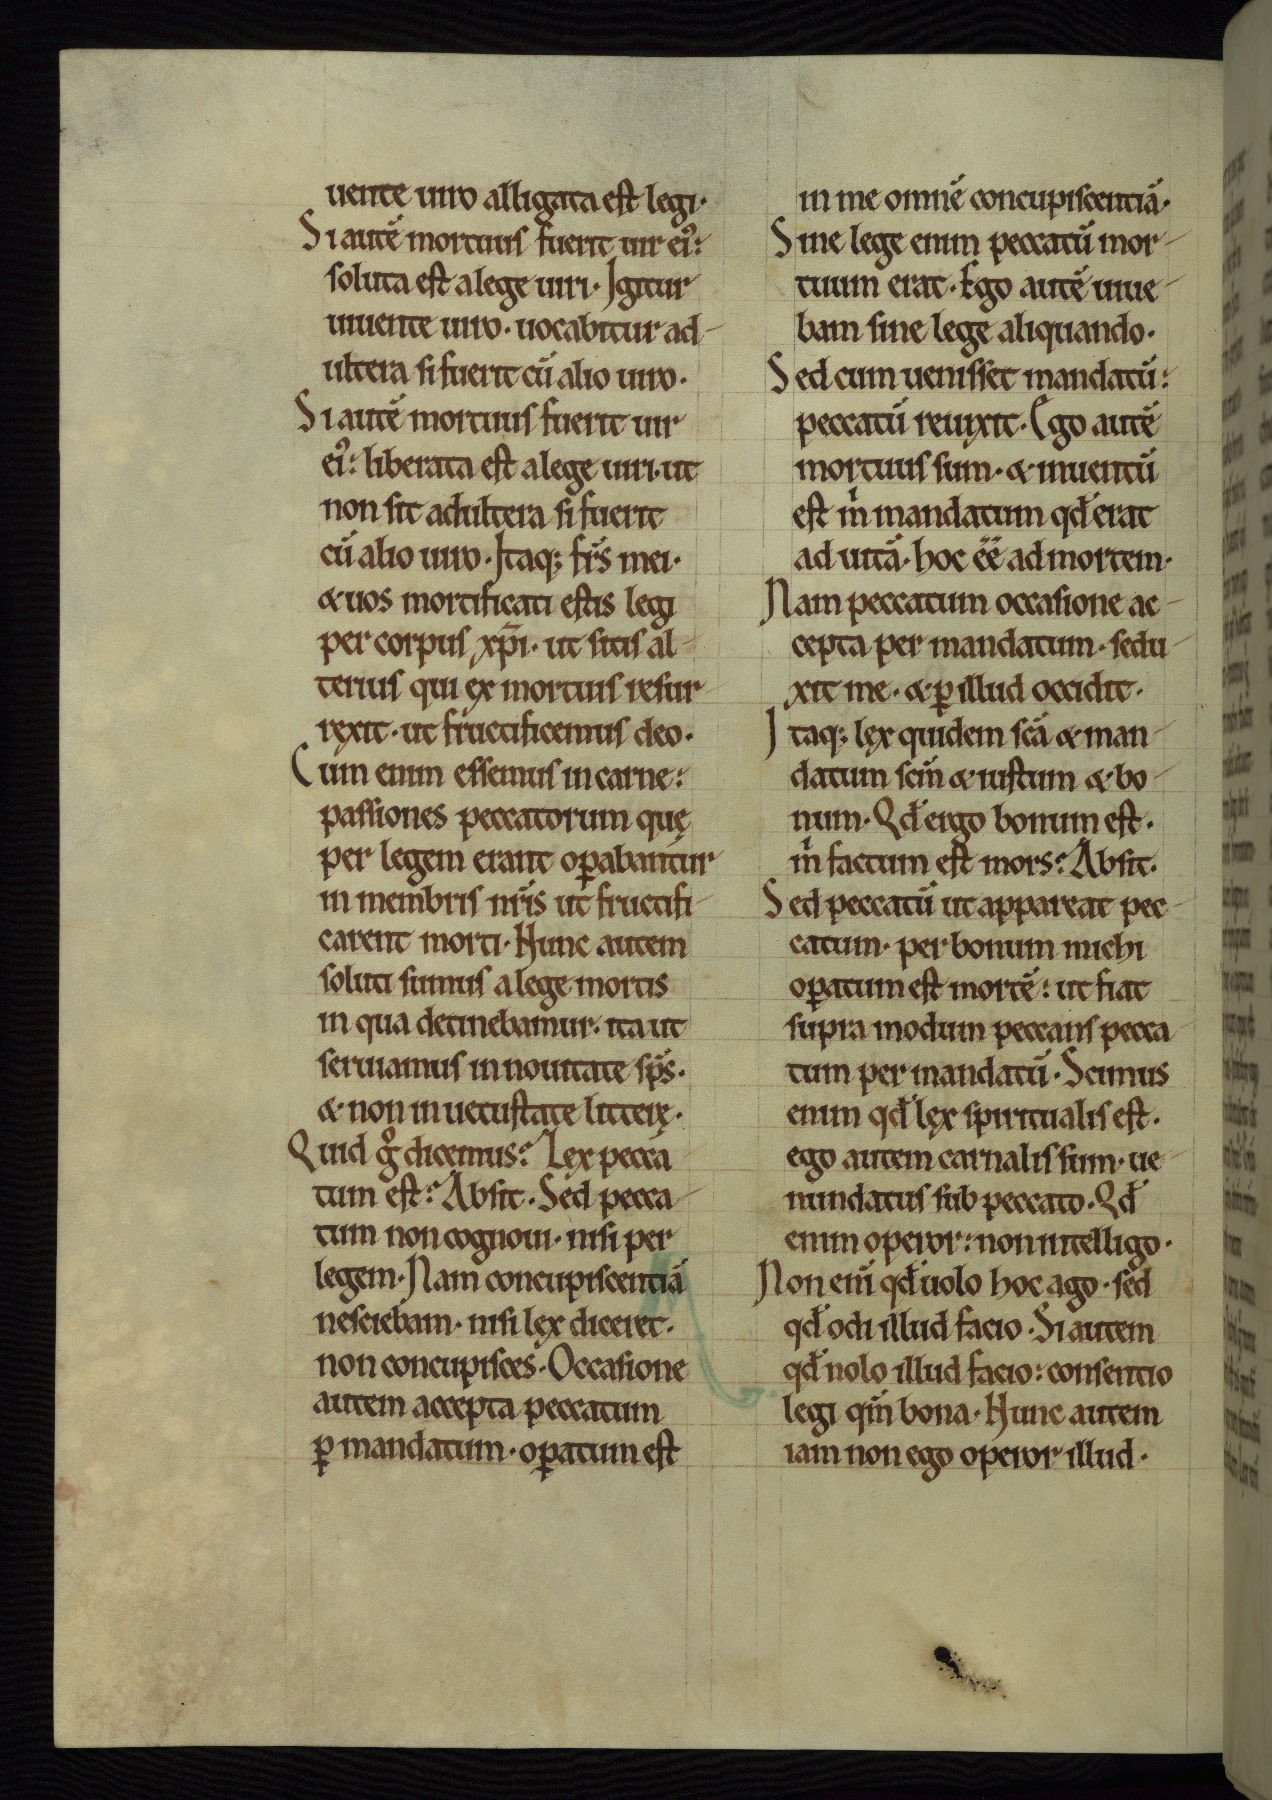 uente uiro alligata est legi·
Si autē mortuus fuerit uir ei᾽:
soluta est a lege uiri· Igitur
uiuente uiro· uocabitur ad-
ultera si fuerit cū alio uiro·
Si autē mortuus fuerit uir
ei᾽: liberata est a lege uiri· ut
non sit adultera si fuerit
cū alio uiro· Itaq; fr̄s mei·
& uos mortificati estis legi
per corpus xp̄i· ut sitis al-
terius qui ex mortuis resur-
rexit· ut fructificemus deo·
Cum enim essemus in carne:
passiones peccatorum quę
per legem erant oꝑabantur
in membris nr̄is ut fructifi-
carent morti· Nunc autem
soluti sumus a lege mortis
in qua detinebamur· ita ut
seruiamus in nouitate sp̄s·
& non in uetustate litterę·
Quid gͦ dicemus? Lex pecca
tum est? Absit· Sed pecca-
tum non cognoui· nisi per
legem· Nam concupiscentiā
nesciebam· nisi lex diceret·
non concupisces· Occasione
autem accepta peccatum
ꝑ mandatum· oꝑatum est
in me omnē concupiscentiā·
Sine lege enim peccatū mor-
tuum erat· Ego autē uiue-
bam sine lege aliquando·
Sed cum uenisset mandatū:
peccatū reuixit· Ego autē
mortuus sum· & inuentū
est m̍ mandatum qd̄ erat
ad uitā· hoc ēē ad mortem·
Nam peccatum occasione ac-
cepta per mandatum· sedu-
xit me· & ꝑ illud occidit·
Itaq; lex quidem scā & man-
datum scm̄ & iustum & bo-
num· Qd̄ ergo bonum est·
m̍ factum est mors? Absit·
Sed peccatū ut appareat pec-
catum· per bonum michi
oꝑatum est mortē: ut fiat
supra modum peccans pecca-
tum per mandatū· Scimus
enim qd̄ lex spiritualis est·
ego autem carnalis sum· ue-
nundatus sub peccato· Qd̄
enim operor: non intelligo·
Non eni̅ qd̄ uolo hoc ago· sed
qd̄ odi illud facio· Si autem
qd̄ nolo illud facio: consentio
legi qm̄ bona· Nunc autem
iam non ego operor illud·